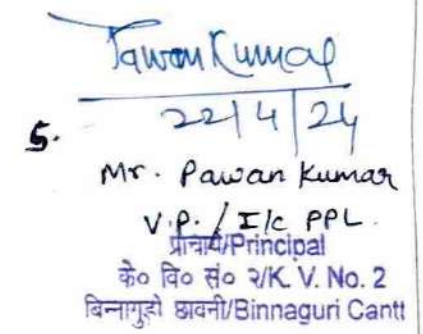 Pawan Kumar
22/4/24
5.
Mr. Pawan Kumar
V.P. / I/c PPL.
प्राचार्य/Principal
के० वि० सं० २/K. V. No. 2
बिन्नागुड़ी छावनी/Binnaguri Cantt